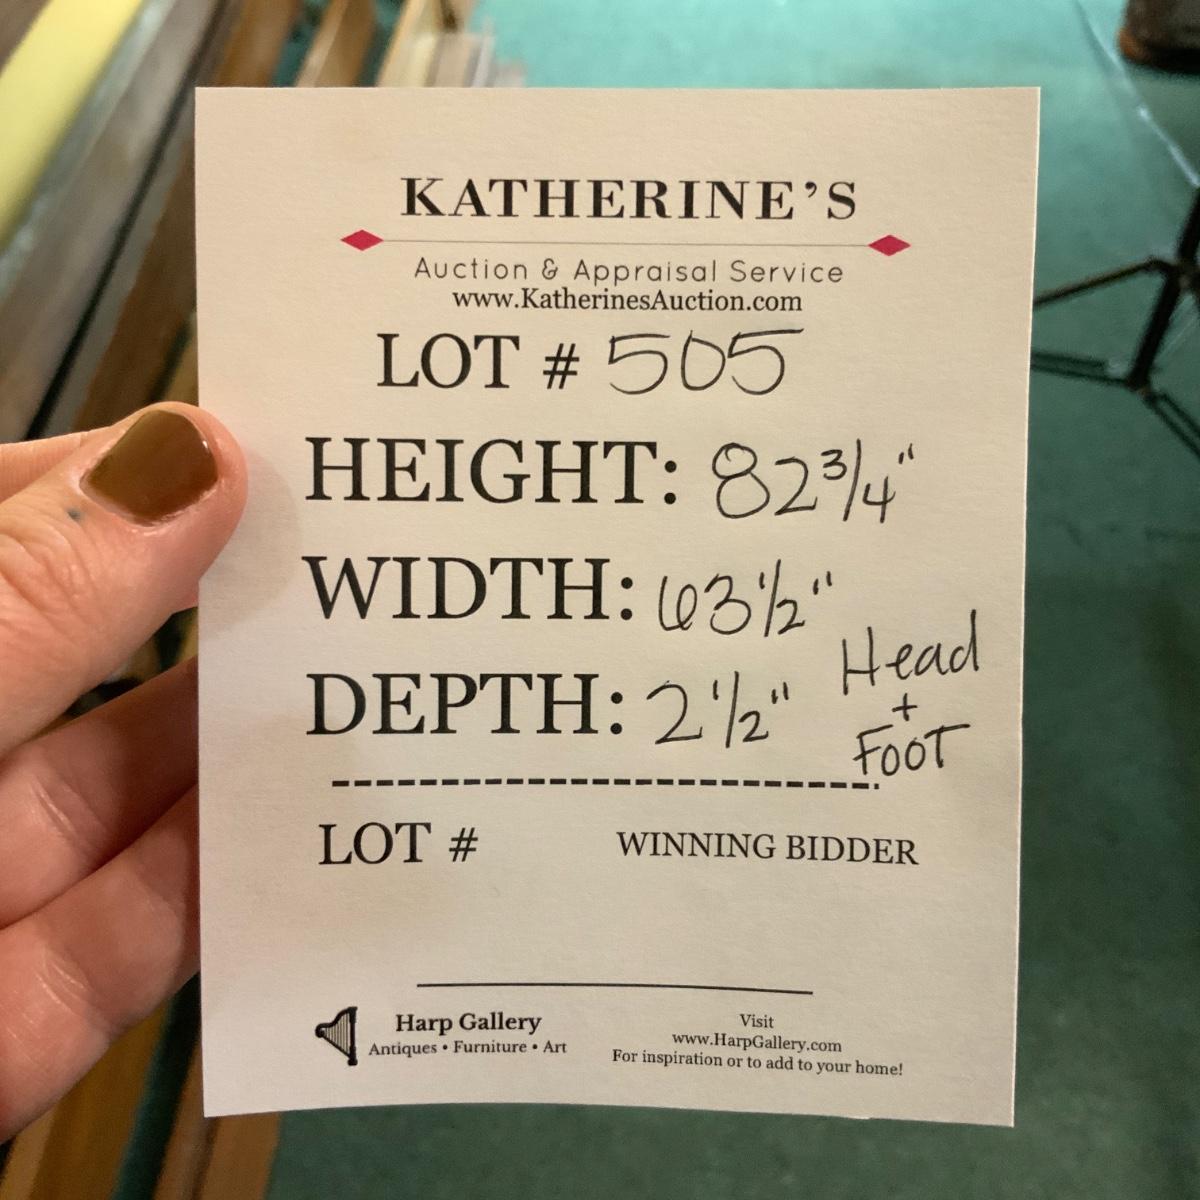 KATHERINE'S
Auction & Appraisal Service
www.KatherinesAuction.com
LOT # 505
HEIGHT: 82 3/4"
WIDTH: 63 1/2"
DEPTH: 2 1/2"
Head
+
FOOT
LOT #
WINNING BIDDER
Harp Gallery
Antiques • Furniture • Art
Visit
www.HarpGallery.com
For inspiration or to add to your home!